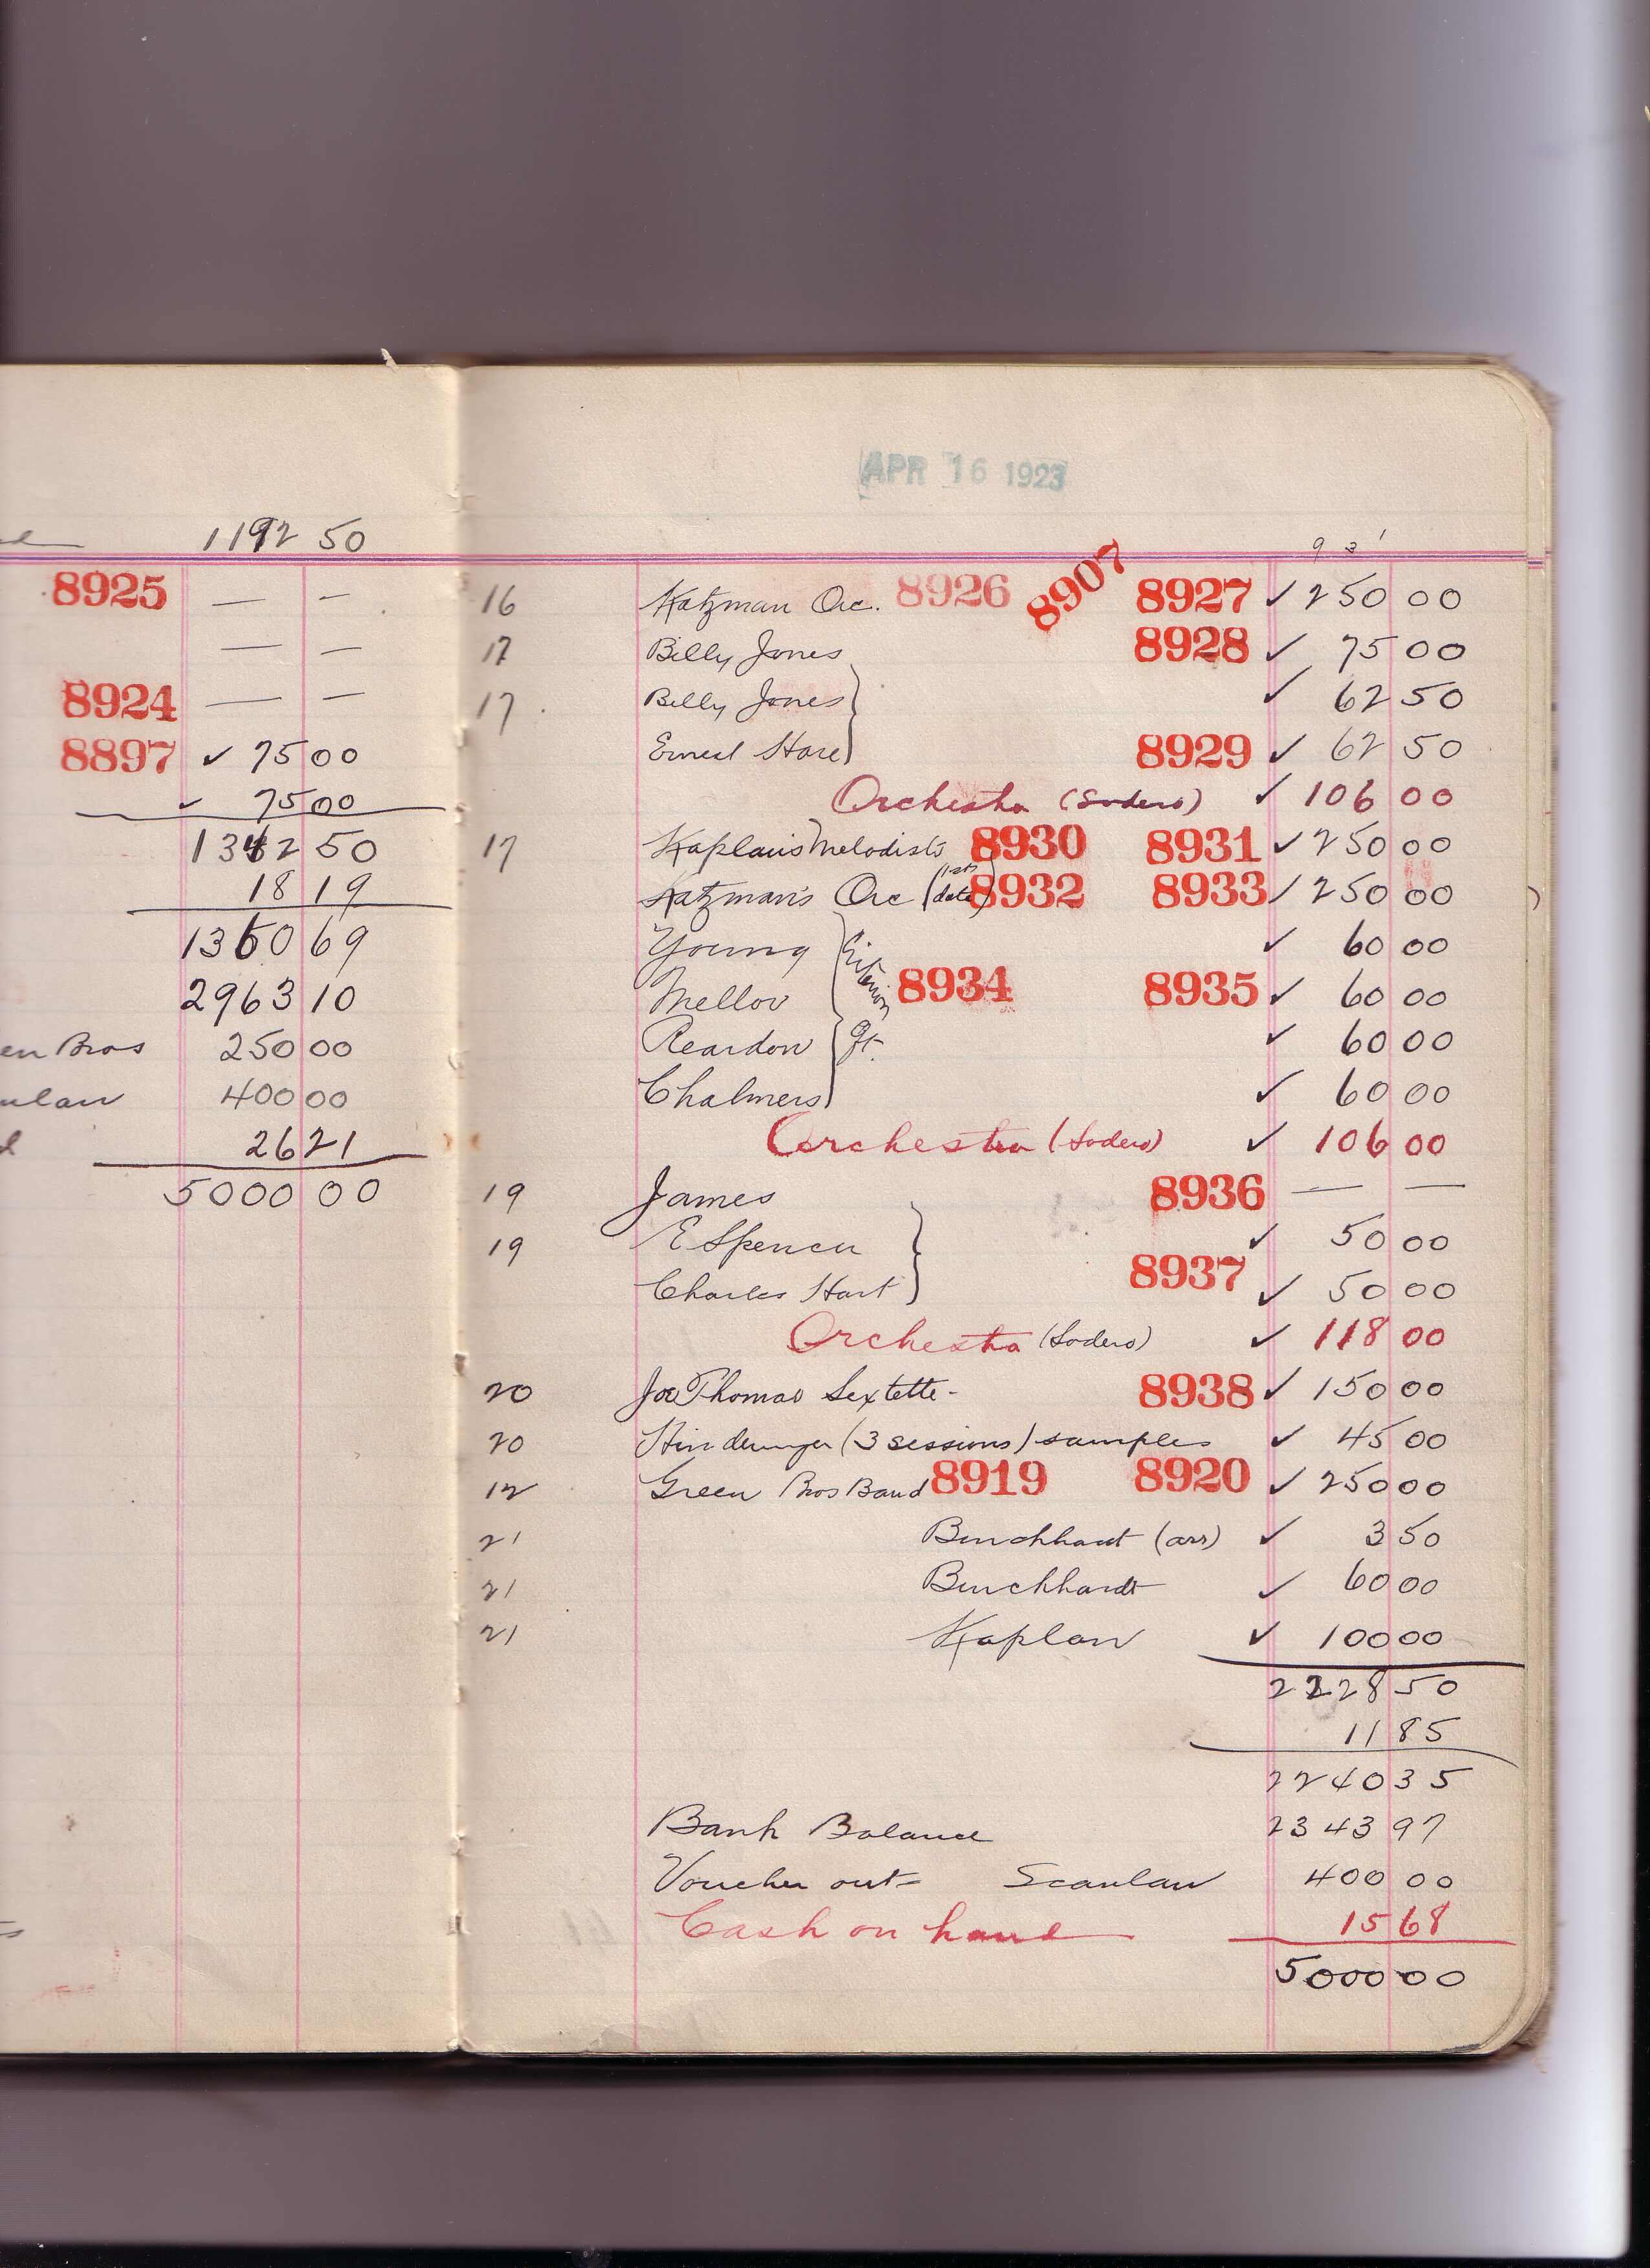 1192 50
8925 — —
— —
8924 — —
8897 ✓ 75 00
✓ 75 00
1342 50
18 19
1360 69
2963 10
en Bros 250 00
400 00
26 21
5000 00
APR 16 1923
9 3 1
16 Katzman Orc. 8926 8907 8927 ✓ 250 00
17 Billy Jones 8928 ✓ 75 00
17 Billy Jones ✓ 62 50
Ernest Hare 8929 ✓ 62 50
Orchestra (Sodero) ✓ 106 00
17 Kaplan's Melodists 8930 8931 ✓ 250 00
Katzman's Orc (1st date) 8932 8933 ✓ 250 00
Young ✓ 60 00
Mellor Criterion 8934 8935 ✓ 60 00
Reardon Qt. ✓ 60 00
Chalmers ✓ 60 00
Orchestra (Sodero) ✓ 106 00
19 James 8936 — —
19 E Spencer ✓ 50 00
Charles Hart 8937 ✓ 50 00
Orchestra (Sodero) ✓ 118 00
20 Joe Thomas Sextette - 8938 ✓ 150 00
20 (3 sessions) samples ✓ 45 00
12 Green Bros Band 8919 8920 ✓ 250 00
21 Burchhardt (arr) ✓ 3 50
21 Burchhardt ✓ 60 00
21 Kaplan ✓ 100 00
2228 50
11 85
2240 35
Bank Balance 2343 97
Voucher out - Scanlan 400 00
Cash on hand 15 68
5000 00